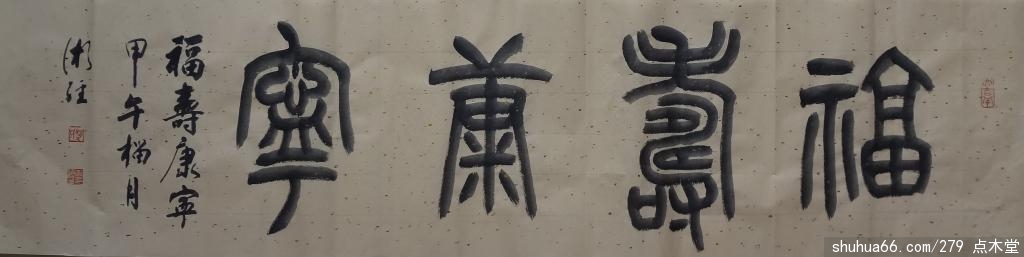 福壽康寧
福壽康寧
甲午榴月
shuhua66.com/279 点木堂